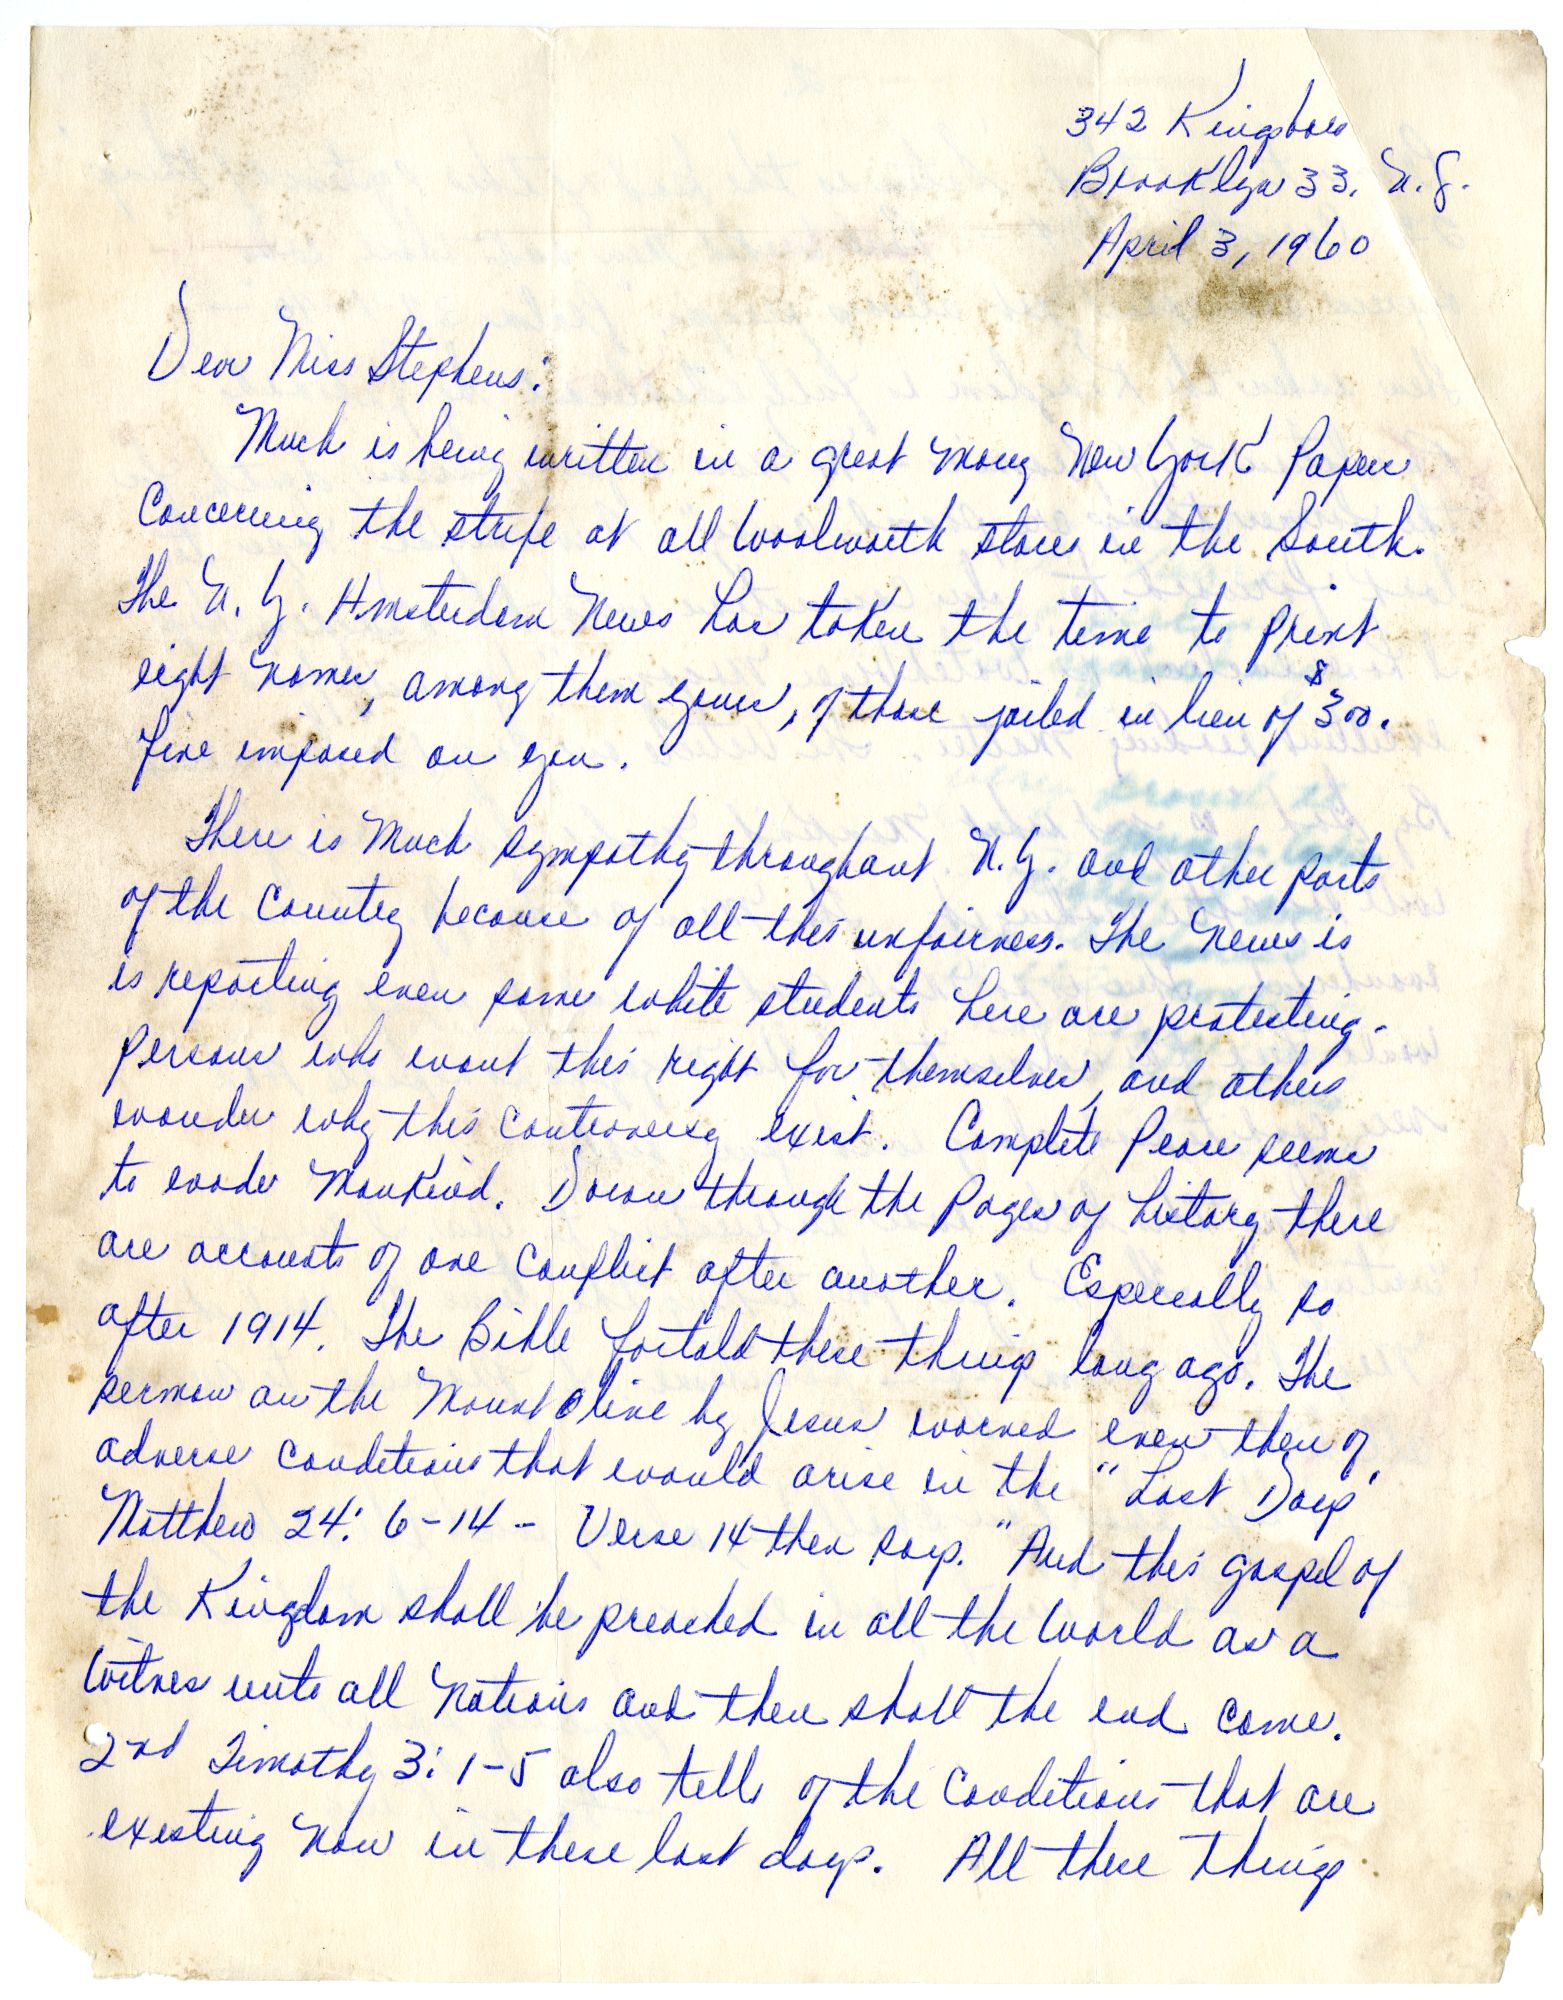 342 Kingsboro
Brooklyn 33, N.Y.
April 3, 1960
Dear Miss Stephens:
Much is being written in a great many New York Papers
Concerning the strife at all Woolworth stores in the South.
The N.Y. Amsterdam News has taken the time to print
eight names, among them yours, of those jailed in lieu of $300.
fine imposed on you.
There is Much sympathy throughout N.Y. and other parts
of the Country because of all this unfairness. The News is
is reporting even some white students here are protesting.
Persons who want this right for themselves, and others
wonder why this controversy exist. Complete Peace seems
to evade Mankind. Down through the Pages of history there
are accounts of one conflict after another. Especially so
after 1914. The Bible fortold these things long ago. The
sermon on the Mount Olive by Jesus warned even then of
adverse conditions that would arise in the "Last Days"
Matthew 24: 6-14 - Verse 14 then says. "And this gospel of
the Kingdom shall be preached in all the World as a
Witnes unto all Nations and then shall the end come.
2nd Timothy 3: 1-5 also tells of the Conditions that are
existing now in these last days. All these things